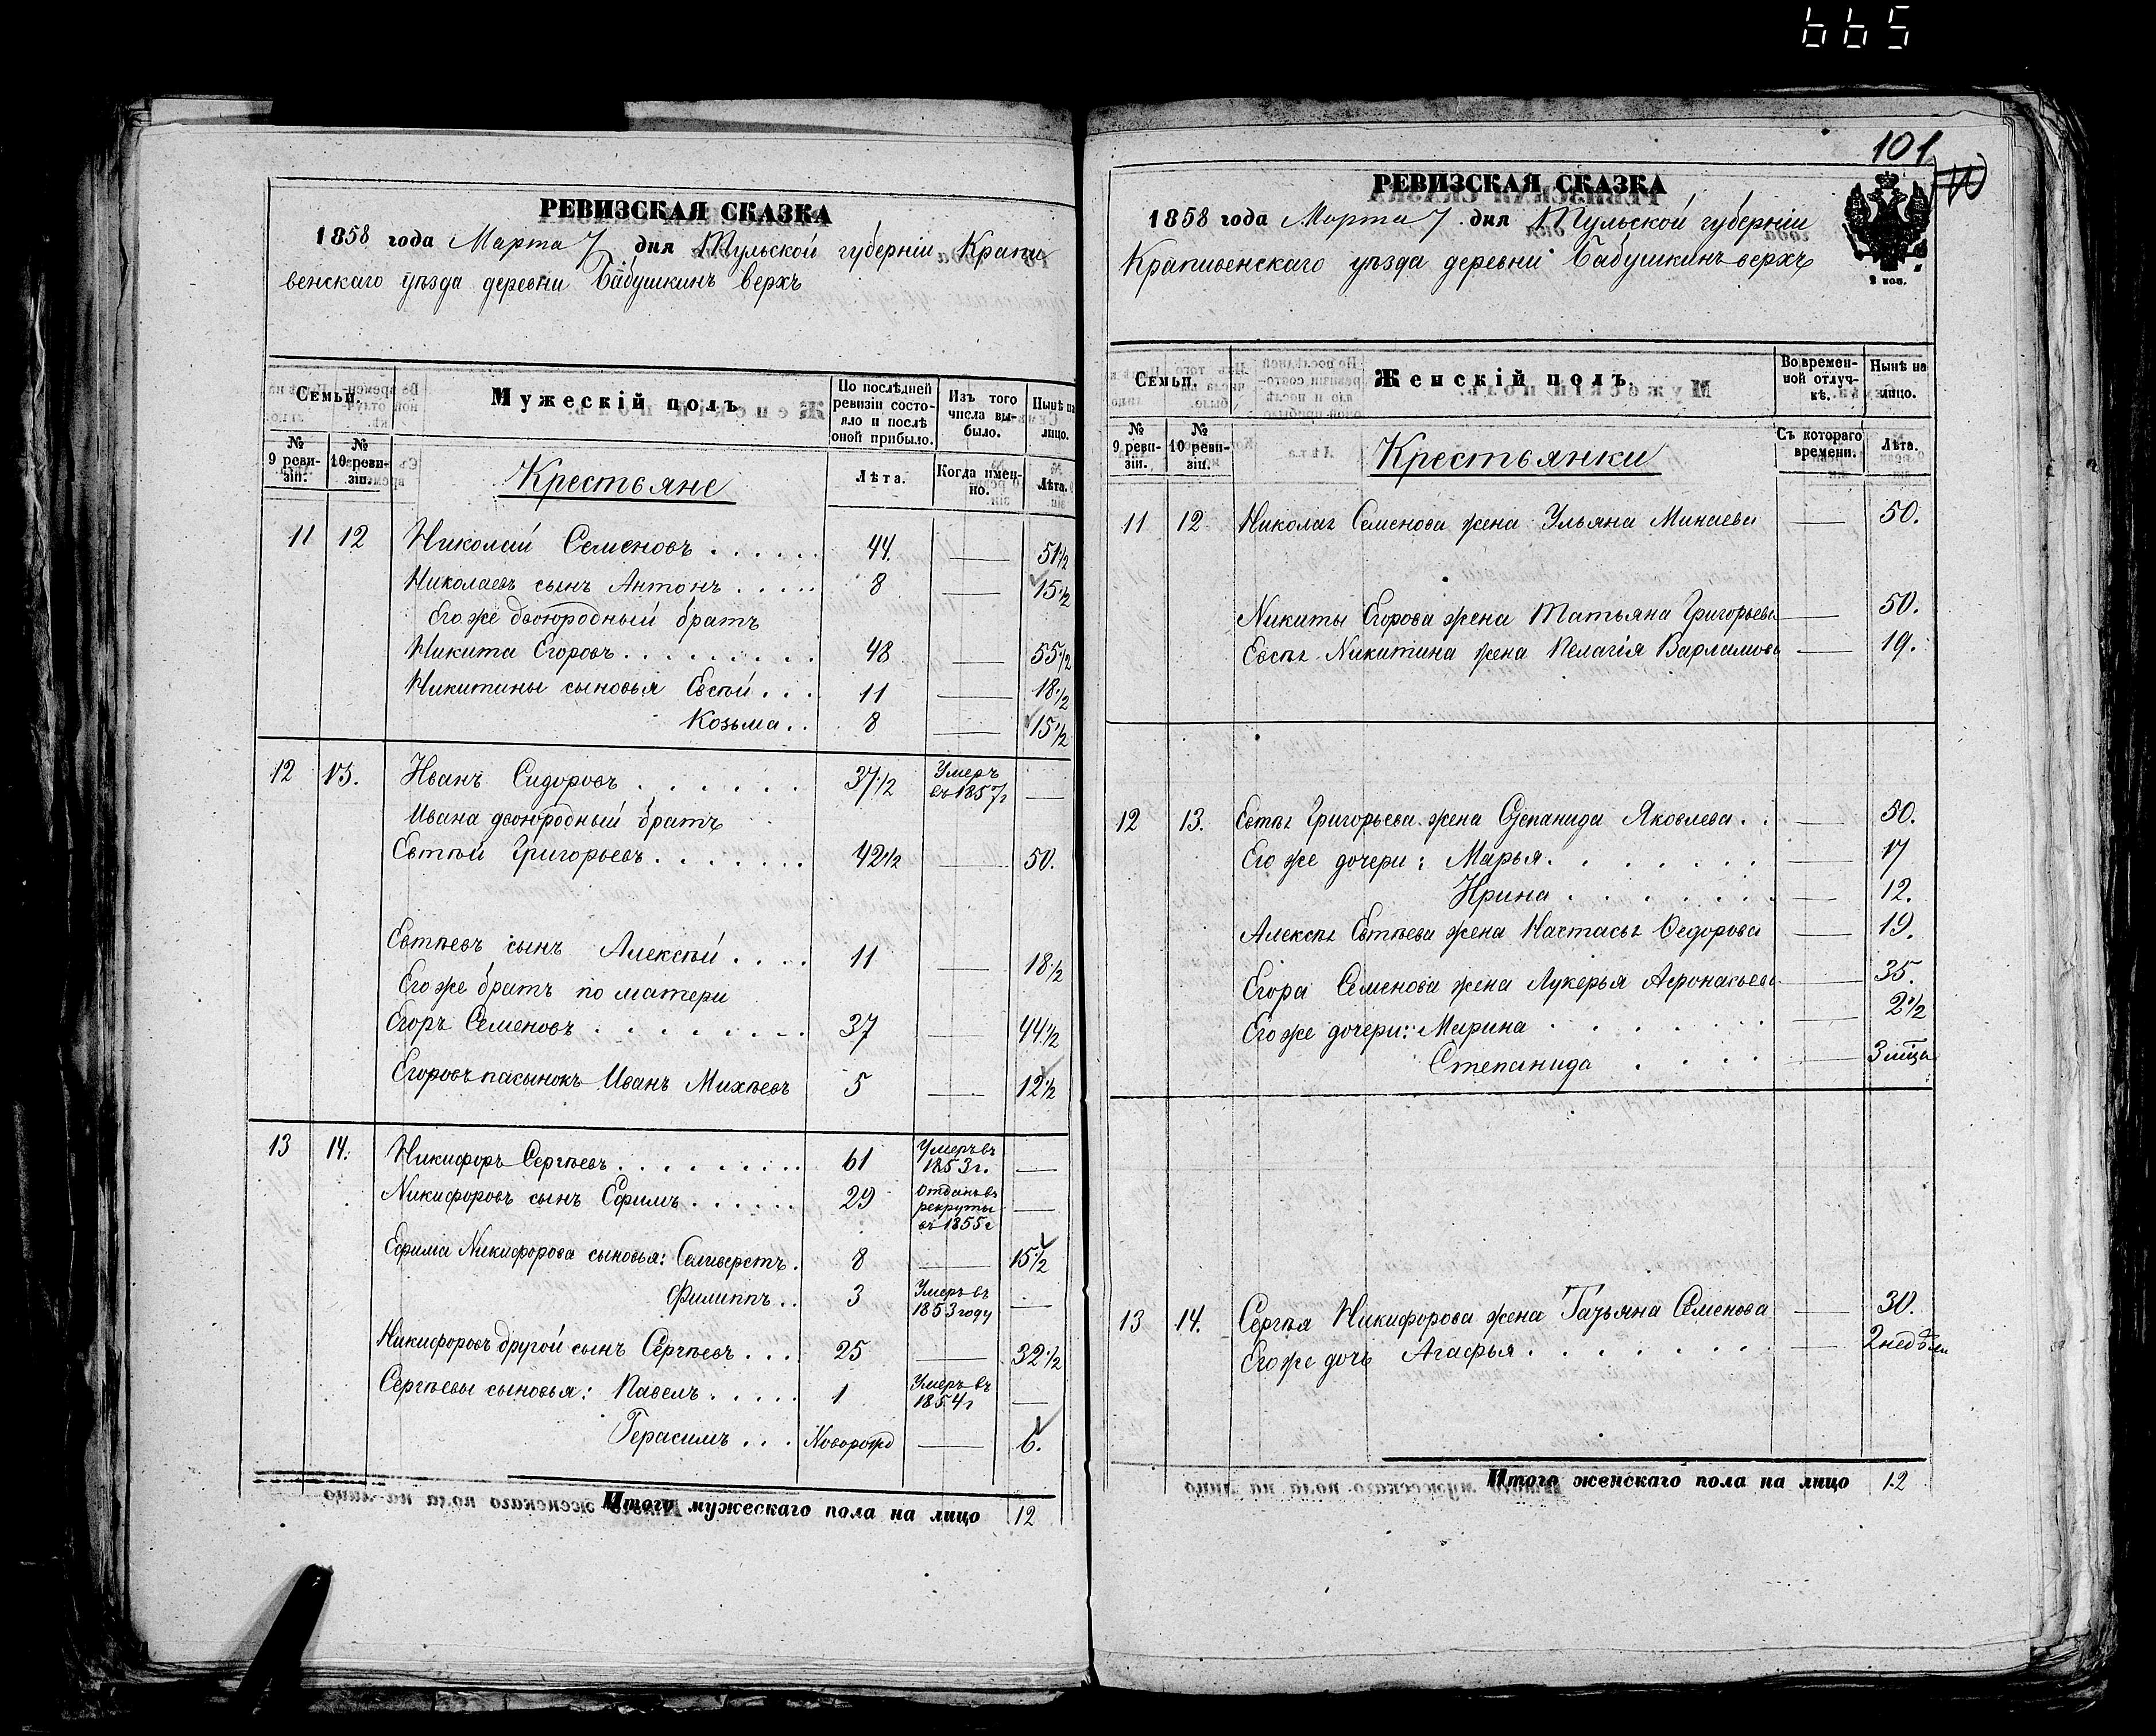 665
РЕВИЗСКАЯ СКАЗКА
1858 года Марта 7 дня Тульской губерніи Крапи
венскаго уѣзда деревни Бабушкинъ верхъ
Семьи.
Мужескій полъ
По послѣдней ревизіи состояло и послѣ оной прибыло.
Изъ того числа выбыло.
Нынѣ на лицо.
№ 9 ревизіи.
№ 10 ревизіи.
Крестьяне
Лѣта.
Когда именно.
Лѣта.
11 12 Николай Семеновъ . . . . . . 44. — 51½
Николаевъ сынъ Антонъ . . . . . 8 — 15½
Его же двоюродный братъ
Никита Егоровъ . . . . . . . . . 48 — 55½
Никитины сыновья Евсѣй . . . 11 — 18½
Козьма . . 8 — 15½
12 13. Иванъ Сидоровъ . . . . . . 37½ Умеръ въ 1857г —
Ивана двоюродный братъ
Евтѣй Григорьевъ . . . . . . . 42½ — 50.
Евтѣевъ сынъ Алексѣй . . . . 11 — 18½
Его же братъ по матери
Егоръ Семеновъ . . . . . . . . . 37 — 44½
Егоровъ пасынокъ Иванъ Михѣевъ 5 — 12½
13 14. Никифоръ Сергѣевъ . . . . . . . . . 61 Умеръ въ 1853г. —
Никифоровъ сынъ Ефимъ . . . . . . 29 Отданъ въ рекруты въ 1855г —
Ефима Никифорова сыновья: Селиверстъ . 8 — 15½
Филиппъ . . 3 Умеръ въ 1853 году —
Никифоровъ другой сынъ Сергѣевъ . . . 25 — 32½
Сергѣевы сыновья: Павелъ . . . . . 1 Умеръ въ 1854г —
Герасимъ . . . Новорожд — 6.
Итого мужескаго пола на лицо 12
101
РЕВИЗСКАЯ СКАЗКА
1858 года Марта 7 дня Тульской губерніи
Крапивенскаго уѣзда деревни Бабушкинъ верхъ
2 коп.
Семьи.
Женскій полъ.
Во временной отлучкѣ.
Нынѣ на лицо.
№ 9 ревизіи.
№ 10 ревизіи.
Крестьянки
Съ котораго времени.
Лѣта.
11 12 Николая Семенова жена Ульяна Минаева — 50.
Никиты Егорова жена Татьяна Григорьева — 50.
Евсѣя Никитина жена Пелагія Варламова — 19.
12 13. Евтѣя Григорьева жена Степанида Яковлева . . — 50.
Его же дочери: Марья . . . . . . . — 17
Ирина . . . . . . . — 12.
Алексѣя Евтѣева жена Настасья Ѳедорова — 19.
Егора Семенова жена Лукерья Афонасьева — 35.
Его же дочери: Марина . . . . . . . — 2½
Степанида . . . — 3 мѣца
13 14. Сергѣя Никифорова жена Татьяна Семенова — 30.
Его же дочь Агафья . . . . . . . — 2 недѣли
Итого женскаго пола на лицо 12